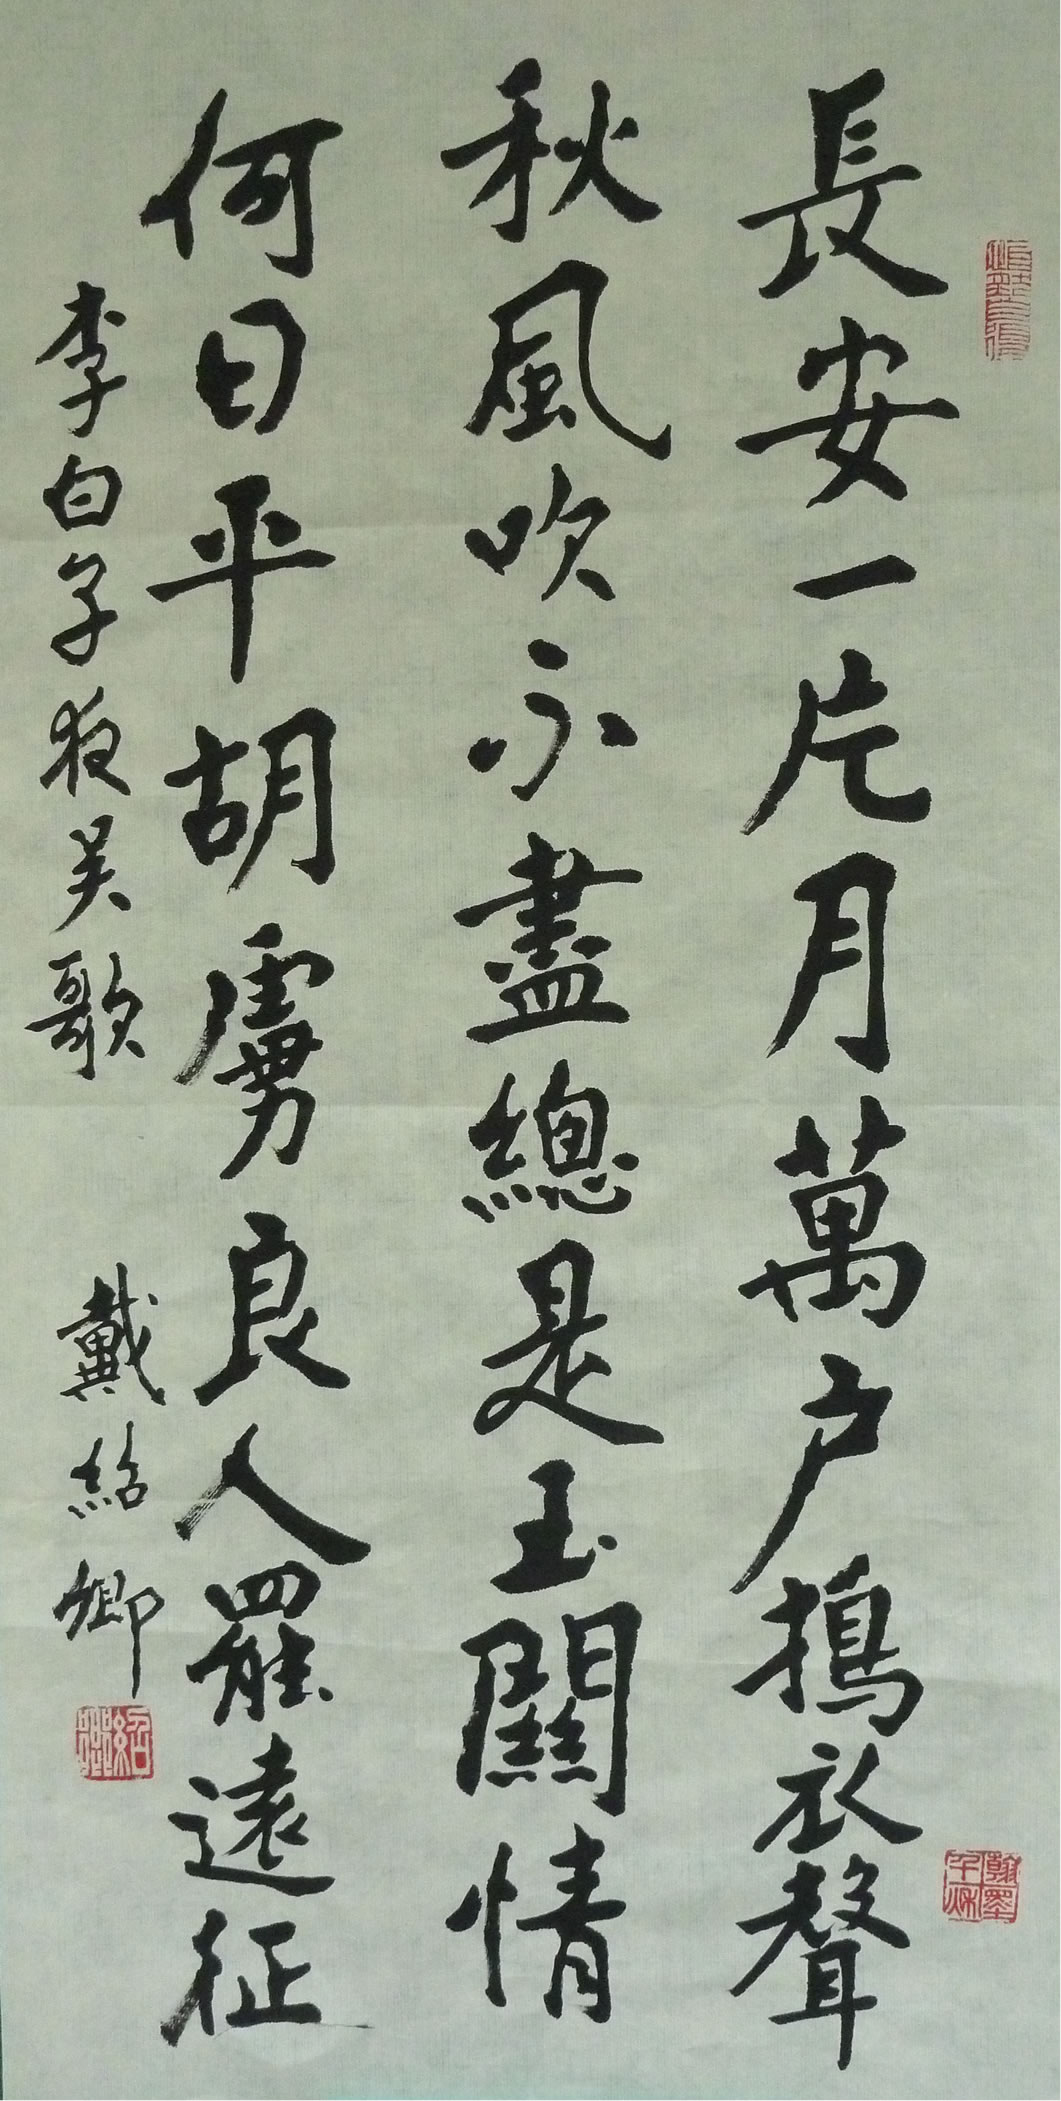 長安一片月萬户搗衣聲
秋風吹不盡總是玉關情
何日平胡虜良人罷遠征
李白子夜吴歌
戴紹卿
翰墨千秋